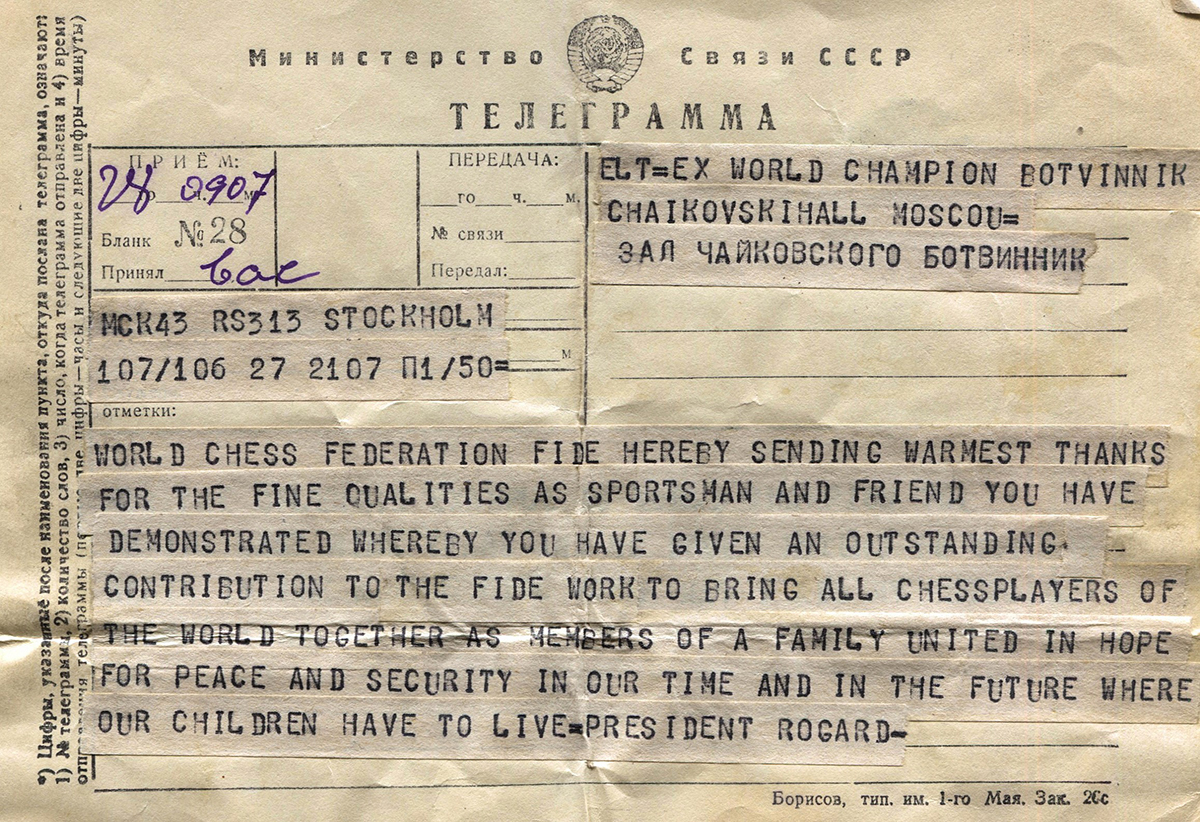 Министерство Связи СССР
ТЕЛЕГРАММА
*) Цифры, указанные после наименования пункта, откуда послана телеграмма, означают:
1) № телеграммы, 2) количество слов, 3) число, когда телеграмма отправлена и 4) время
отправления телеграммы две цифры—часы и следующие две цифры—минуты)
ПРИЁМ:
28 0907
Бланк №28
Принял
ПЕРЕДАЧА:
го ч. м.
№ связи
Передал:
ELT=EX WORLD CHAMPION BOTVINNIK
CHAIKOVSKIHALL MOSCOU=
ЗАЛ ЧАЙКОВСКОГО БОТВИННИК
МСК43 RS313 STOCKHOLM
107/106 27 2107 П1/50=
м
отметки:
WORLD CHESS FEDERATION FIDE HEREBY SENDING WARMEST THANKS
FOR THE FINE QUALITIES AS SPORTSMAN AND FRIEND YOU HAVE
DEMONSTRATED WHEREBY YOU HAVE GIVEN AN OUTSTANDING
CONTRIBUTION TO THE FIDE WORK TO BRING ALL CHESSPLAYERS OF
THE WORLD TOGETHER AS MEMBERS OF A FAMILY UNITED IN HOPE
FOR PEACE AND SECURITY IN OUR TIME AND IN THE FUTURE WHERE
OUR CHILDREN HAVE TO LIVE=PRESIDENT ROGARD-
Борисов, тип. им. 1-го Мая. Зак.